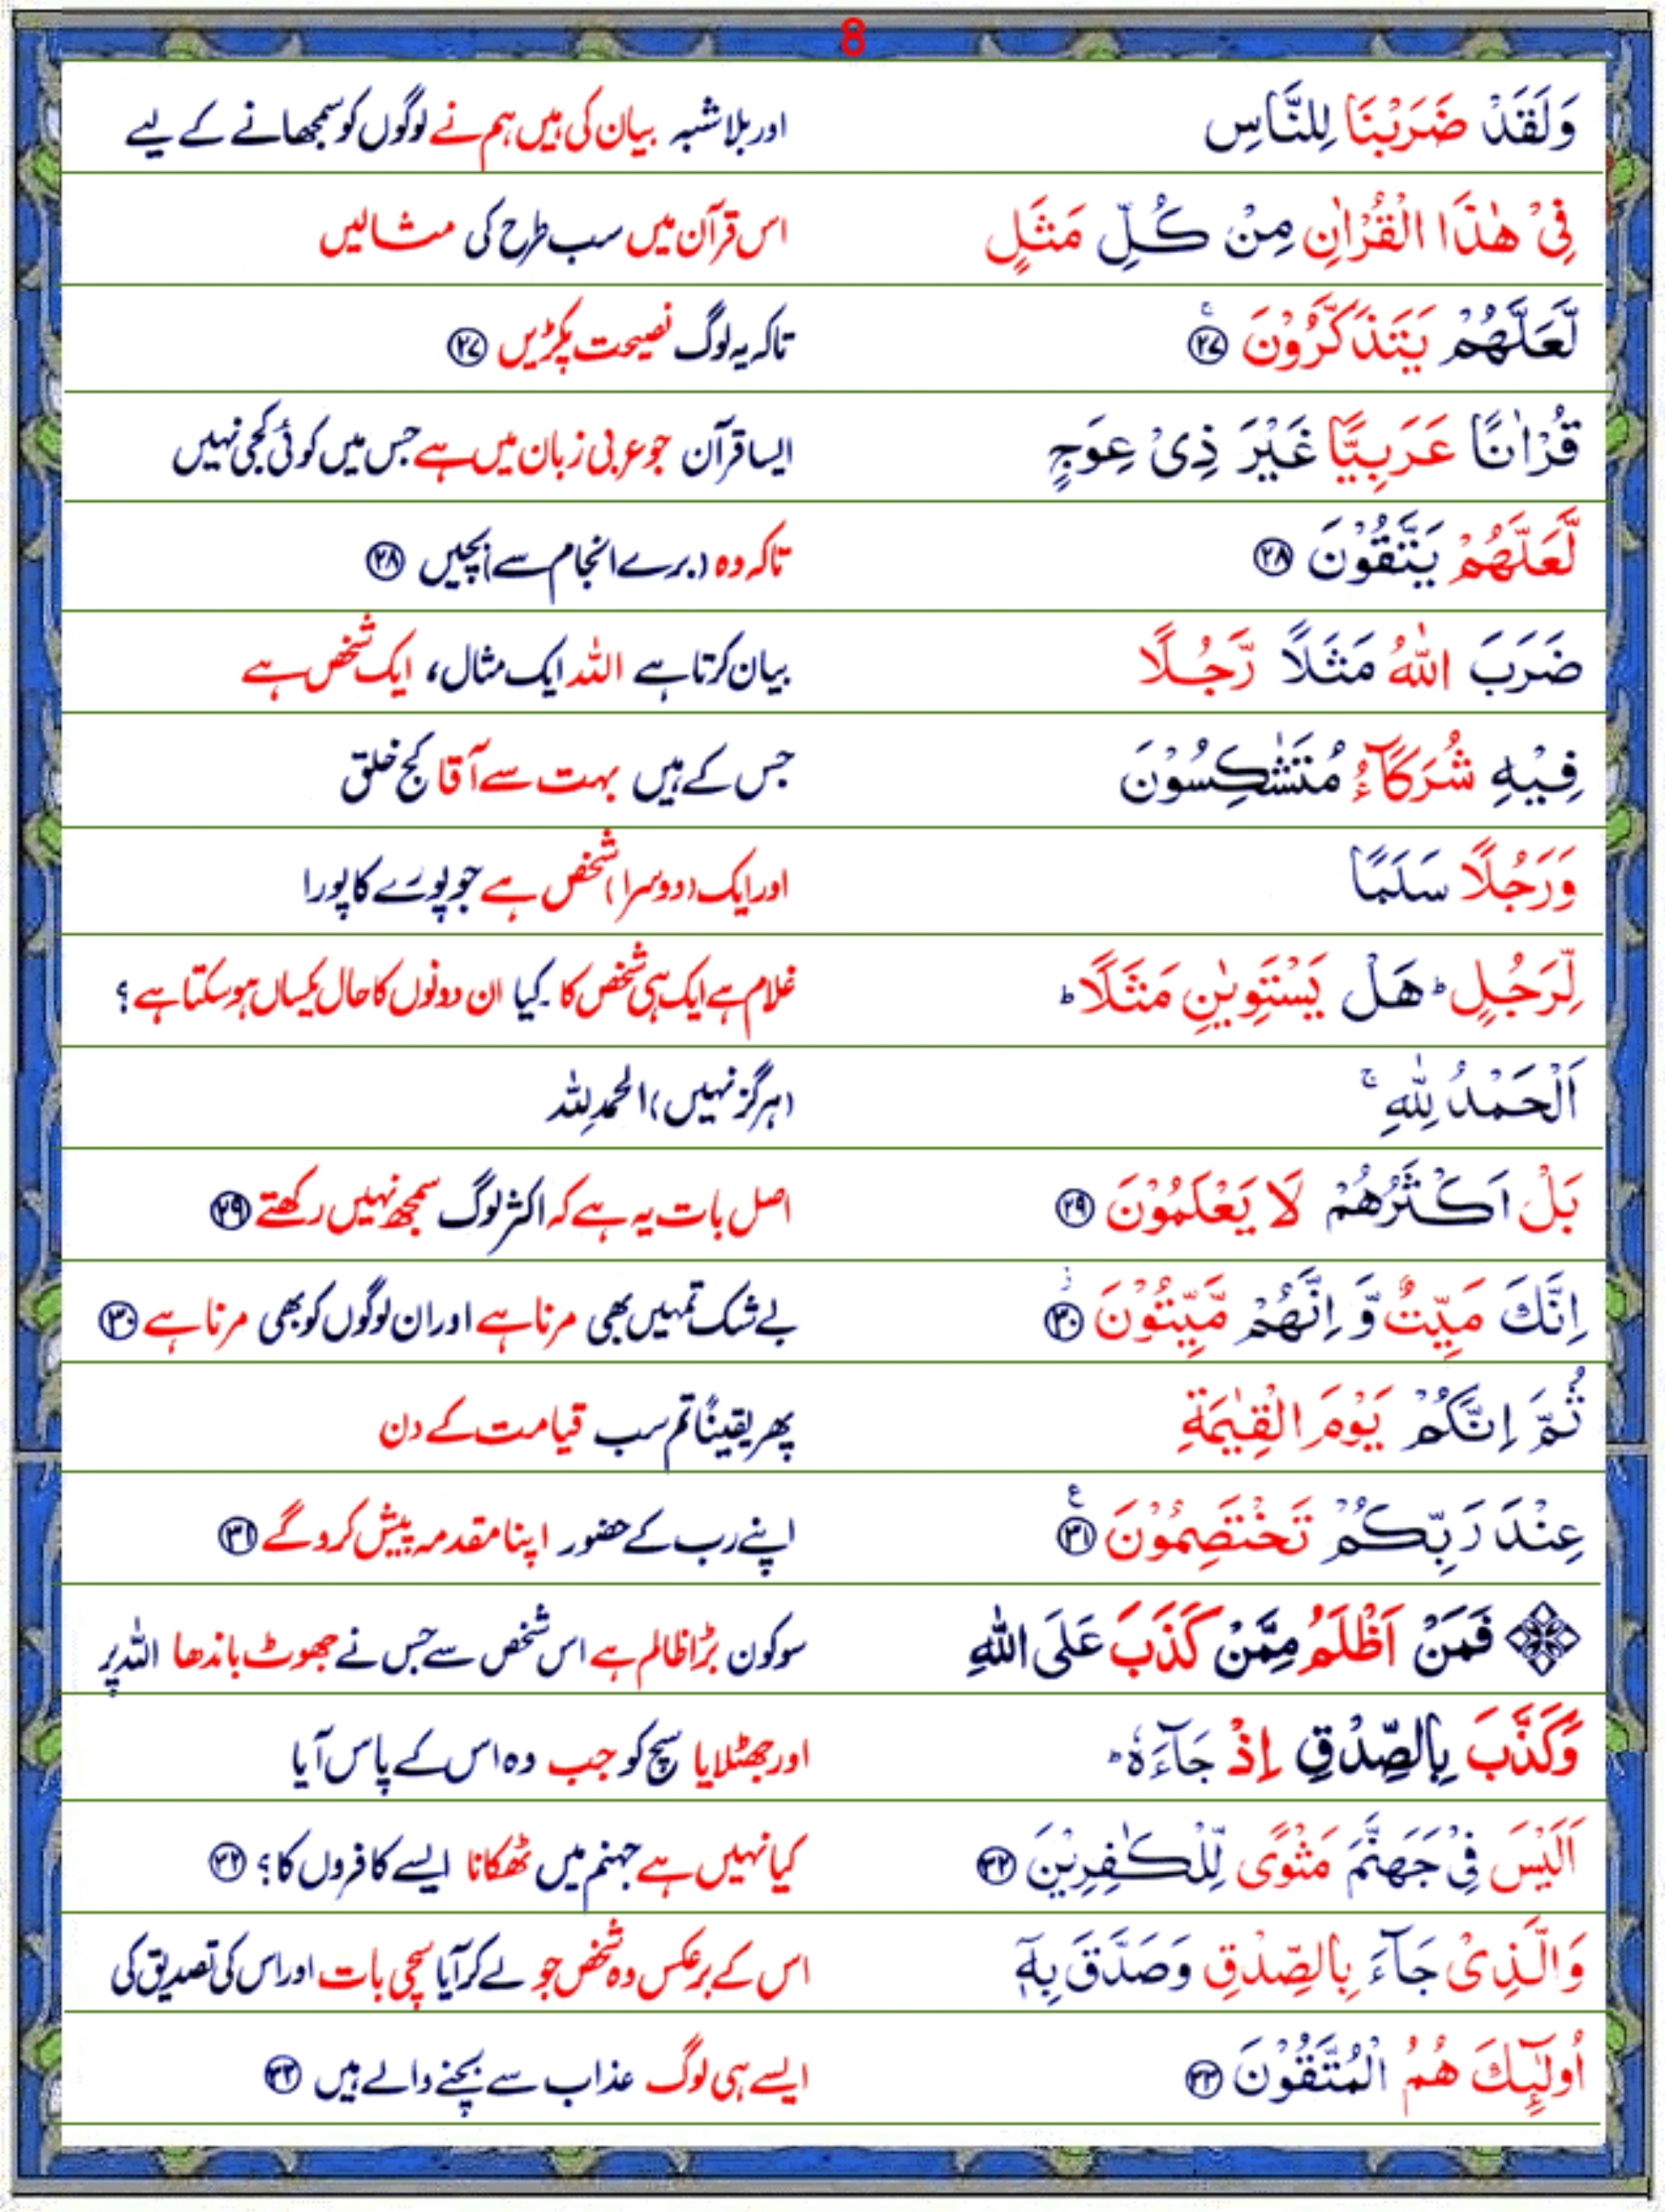 8
وَلَقَدْ ضَرَبْنَا لِلنَّاسِ اور بلاشبہ بیان کی ہیں ہم نے لوگوں کو سمجھانے کے لیے
فِیْ هٰذَا الْقُرْاٰنِ مِنْ كُلِّ مَثَلٍ اس قرآن میں سب طرح کی مثالیں
لَّعَلَّهُمْ یَتَذَكَّرُوْنَ ۚ ﴿۲۷﴾ تاکہ یہ لوگ نصیحت پکڑیں ﴿۲۷﴾
قُرْاٰنًا عَرَبِیًّا غَیْرَ ذِیْ عِوَجٍ ایسا قرآن جو عربی زبان میں ہے جس میں کوئی کجی نہیں
لَّعَلَّهُمْ یَتَّقُوْنَ ﴿۲۸﴾ تاکہ وہ (برے انجام سے) بچیں ﴿۲۸﴾
ضَرَبَ اللّٰهُ مَثَلًا رَّجُلًا بیان کرتا ہے اللہ ایک مثال، ایک شخص ہے
فِیْهِ شُرَكَآءُ مُتَشٰكِسُوْنَ جس کے ہیں بہت سے آقا کج خلق
وَرَجُلًا سَلَمًا اور ایک (دوسرا) شخص ہے جو پورے کا پورا
لِّرَجُلٍ ؕ هَلْ یَسْتَوِیٰنِ مَثَلًا ؕ غلام ہے ایک ہی شخص کا۔ کیا ان دونوں کا حال یکساں ہوسکتا ہے؟
اَلْحَمْدُ لِلّٰهِ ۚ (ہرگز نہیں) الحمدللہ
بَلْ اَكْثَرُهُمْ لَا یَعْلَمُوْنَ ﴿۲۹﴾ اصل بات یہ ہے کہ اکثر لوگ سمجھ نہیں رکھتے ﴿۲۹﴾
اِنَّكَ مَیِّتٌ وَّ اِنَّهُمْ مَّیِّتُوْنَ ؗ ﴿۳۰﴾ بے شک تمہیں بھی مرنا ہے اور ان لوگوں کو بھی مرنا ہے ﴿۳۰﴾
ثُمَّ اِنَّكُمْ یَوْمَ الْقِیٰمَةِ پھر یقیناً تم سب قیامت کے دن
عِنْدَ رَبِّكُمْ تَخْتَصِمُوْنَ ﴿۳۱﴾ ع اپنے رب کے حضور اپنا مقدمہ پیش کرو گے ﴿۳۱﴾
فَمَنْ اَظْلَمُ مِمَّنْ كَذَبَ عَلَی اللّٰهِ سو کون بڑا ظالم ہے اس شخص سے جس نے جھوٹ باندھا اللہ پر
وَكَذَّبَ بِالصِّدْقِ اِذْ جَآءَهٗ ؕ اور جھٹلایا سچ کو جب وہ اس کے پاس آیا
اَلَیْسَ فِیْ جَهَنَّمَ مَثْوًی لِّلْكٰفِرِیْنَ ﴿۳۲﴾ کیا نہیں ہے جہنم میں ٹھکانا ایسے کافروں کا؟ ﴿۳۲﴾
وَالَّذِیْ جَآءَ بِالصِّدْقِ وَصَدَّقَ بِهٖۤ اس کے برعکس وہ شخص جو لے کر آیا سچی بات اور اس کی تصدیق کی
اُولٰٓىِٕكَ هُمُ الْمُتَّقُوْنَ ﴿۳۳﴾ ایسے ہی لوگ عذاب سے بچنے والے ہیں ﴿۳۳﴾